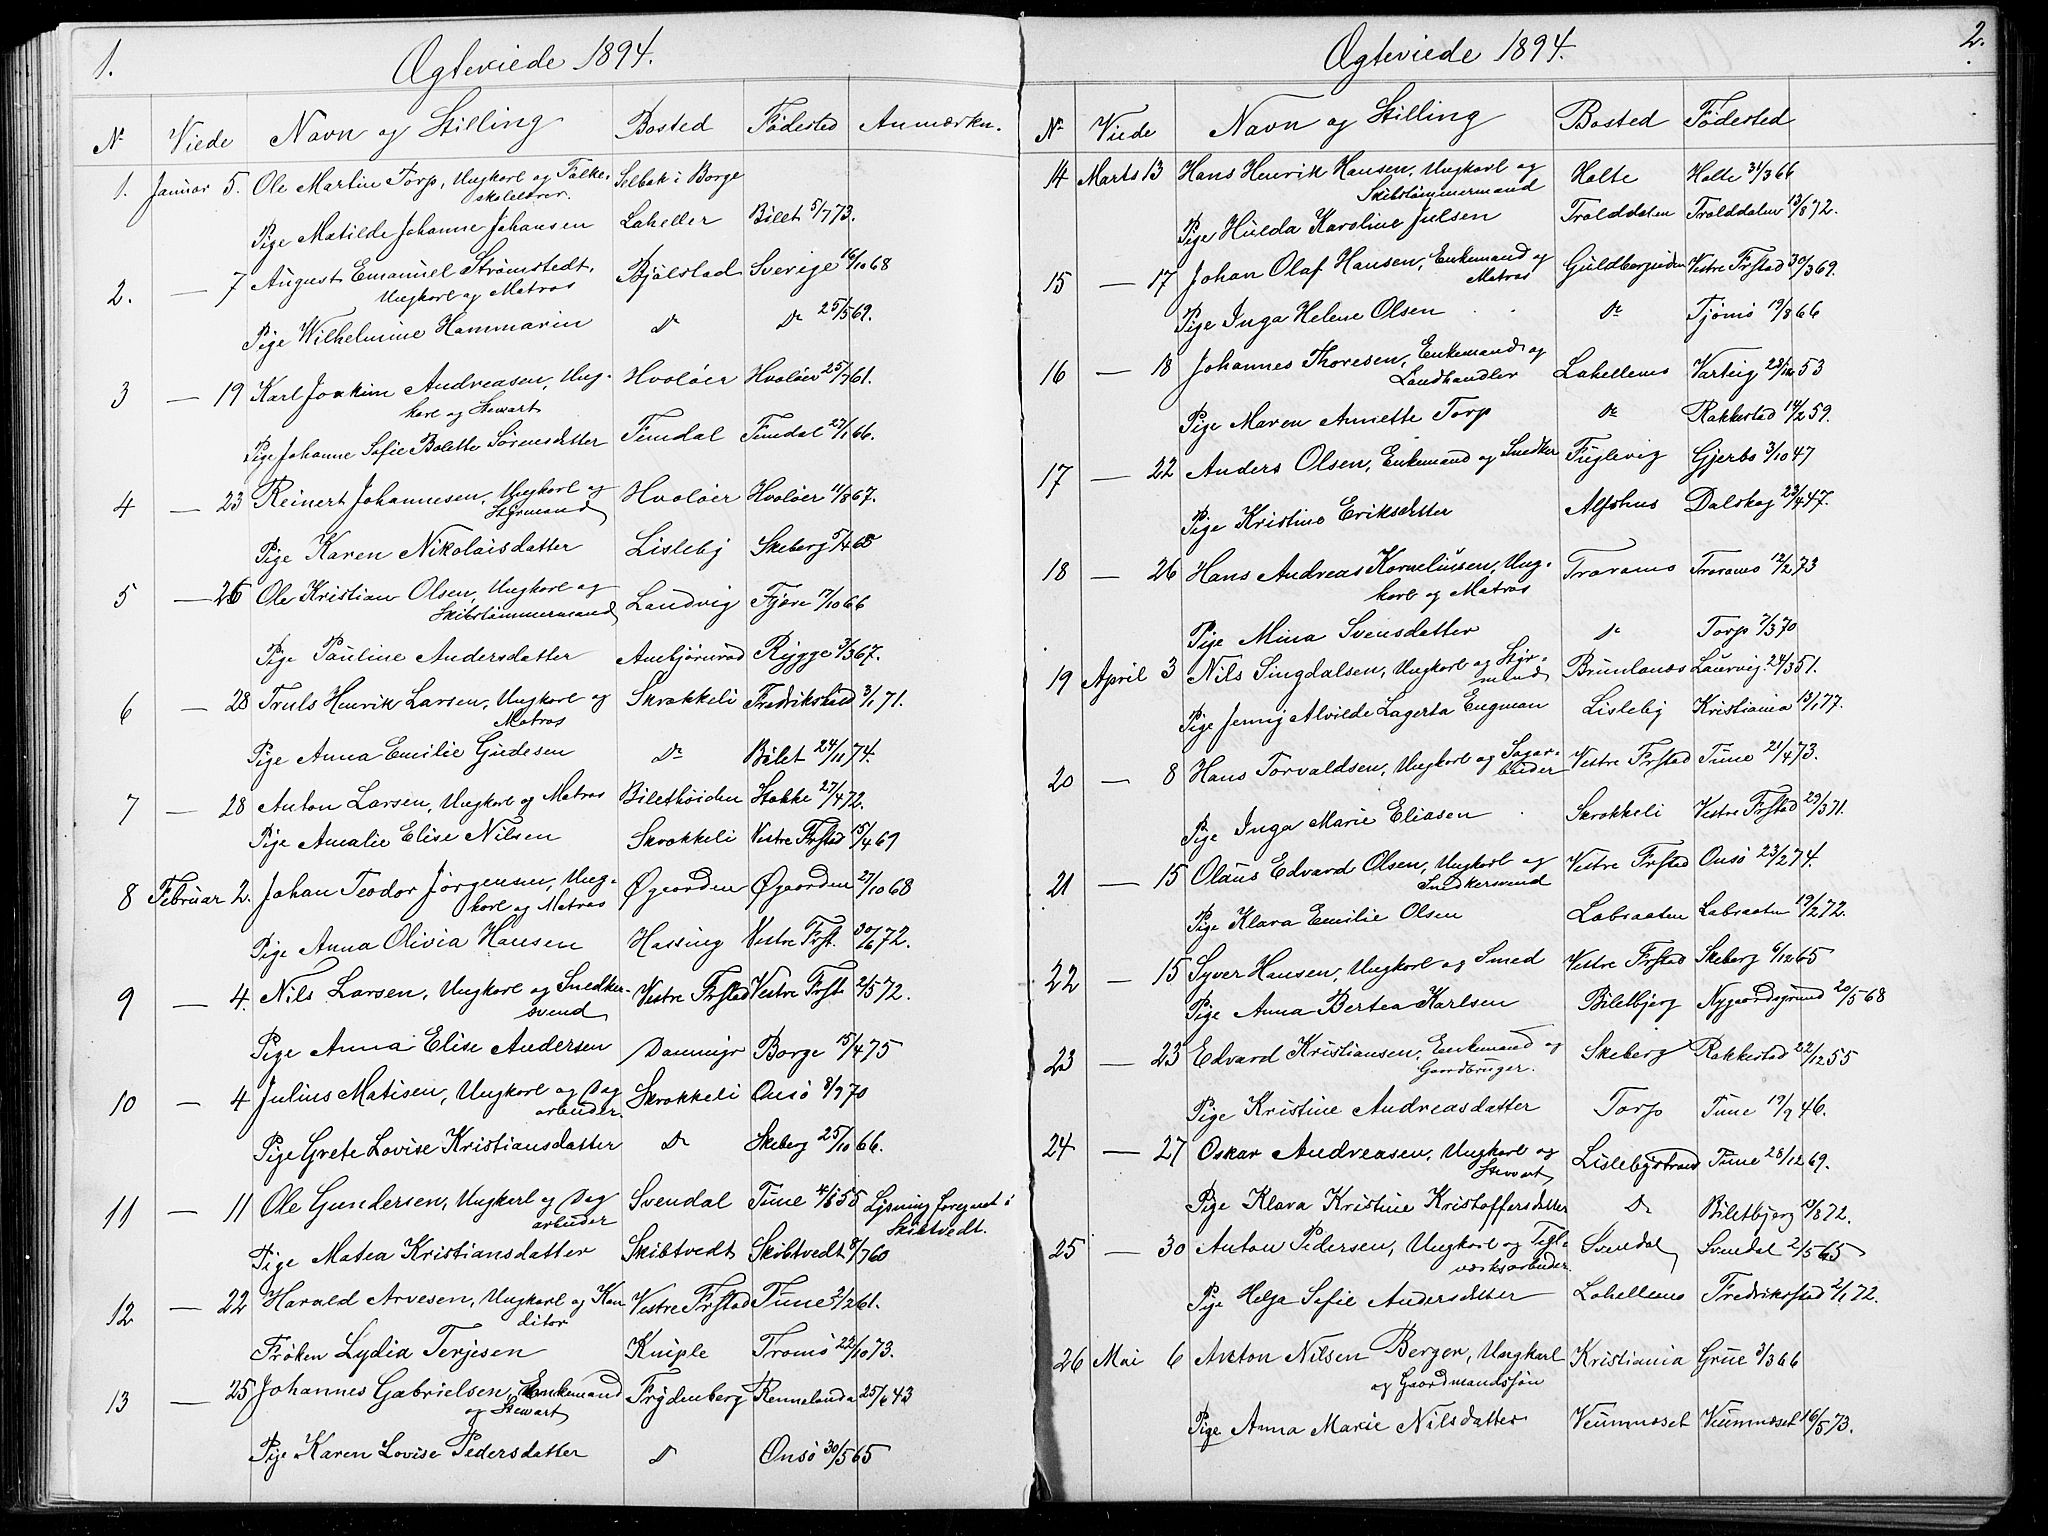 1.
Ægteviede 1894.
No Viede Navn og Stilling Bosted Fødested Anmærkn.
1. Januar 5. Ole Martin Torp, Ungkarl og Folke- Selbak i Borge
skolelærer.
Pige Matilde Johanne Johansen Lahellen Bilet 5/7 73.
2. — 7 August Emanuel Strömstedt, Bjölstad Sverige 16/10 68
Ungkarl og Matros
Pige Wilhelmine Hammarin Do Do 25/5 69.
3 — 19 Karl Joakim Andreasen, Ung- Hvaløer Hvaløer 25/7 61.
karl og Stewart
Pige Johanne Sofie Bolette Sørensdatter Fundal Fundal 27/1 66.
4 — 23 Reinert Johannesen, Ungkarl og Hvaløer Hvaløer 11/8 67.
Styrmand
Pige Karen Nikolaisdatter Lisleby Skeberg 5/4 65
5 — 26 Ole Kristian Olsen, Ungkarl og Landvig Fjære 17/10 66
Skibstømmermand
Pige Pauline Andersdatter Ambjørnrød Rygge 3/3 67.
6 — 28 Truls Henrik Larsen, Ungkarl og Skrakkeli Fredrikstad 3/1 71.
Matros
Pige Anna Emilie Gudesen Do Bilet 24/11 74.
7 — 28 Anton Larsen, Ungkarl og Matros Bilethøiden Stokke 27/4 72.
Pige Amalie Elise Nilsen Skrakkeli Vestre Frstad 15/4 69
8 Februar 2. Johan Teodor Jørgensen, Ung- Øgaarden Øgaarden 27/10 68
karl og Matros
Pige Anna Olivia Hansen Hassing Vestre Frst. 30/6 72.
9 — 4. Nils Larsen, Ungkarl og Snedker- Vestre Frstad Vestre Frst. 2/5 72.
svend
Pige Anna Elise Andersen Dammyr Borge 15/4 75
10 — 4 Julius Matisen, Ungkarl og Dag Skrakkeli Onsö 8/9 70
arbeider.
Pige Grete Lovise Kristiansdatter Do Skeberg 25/10 66.
11 — 11 Ole Gundersen, Ungkarl og Dag Svendal Tune 55 Lysning foregaaet i
arbeider Skibtvedt.
Pige Matea Kristiansdatter Skibtvedt Skibtvedt 8/7 60
12 — 22 Harald Arvesen, Ungkarl og Kon Vestre Frstad Tune 2/2 61.
ditor
Frøken Lydia Terjesen Kniple Tromö 22/10 73.
13 — 25 Johannes Gabrielsen, Enkemand Frydenberg Rennelanda 25/6 43
og Stewart
Pige Karen Lovise Pedersdatter Do Onsö 30/5 65
2.
Ægteviede 1894.
No Viede Navn og Stilling Bosted Fødested
14 Marts 13 Hans Henrik Hansen, Ungkarl og Holte Holte 31/3 66
Skibstømmermand
Pige Hulda Karoline Julsen Tralddalen Tralddalen 13/8 72.
15 — 17 Johan Olaf Hansen, Enkemand og Guldbergsiden Vestre Frstad 30/3 69.
Matros
Pige Inga Helene Olsen Do Tjømö 19/8 66
16 — 18 Johannes Thoresen, Enkemand og Lahellems Varteig 53
Landhandler
Pige Maren Annette Torp Do Rakkestad 14/2 59.
17 — 22 Anders Olsen, Enkemand og Snedker Fuglevig Gjerbo 3/10 47
Pige Kristine Eriksdatter Alfshus Dalskog 23/4 47.
18 — 26 Hans Andreas Korneliussen, Ung- Traraas Traraas 12/2 73
karl og Matros
Pige Mina Svensdatter Do Torp 7/3 70
19 April 3 Nils Singdalsen, Ungkarl og Styr- Brunlanæs Laurvig 24/3 51.
mand
Pige Jenny Alvilde Lagerta Engman Lisleby Kristiania 13/1 77.
20 — 8 Hans Torvaldsen, Ungkarl og Sagar- Vestre Frstad Tune 21/4 73.
beider
Pige Inga Marie Eliasen Skrakkeli Vestre Frstad 29/3 71.
21 — 15 Olaus Edvard Olsen, Ungkarl og Vestre Frstad Onsö 23/2 74.
Snedkersvend
Pige Klara Emilie Olsen Labraaten Labraaten 19/2 72.
22 — 15 Syver Hansen, Ungkarl og Smed Vestre Frstad Skeberg 6/12 65
Pige Anna Bertea Karlsen Biletbjerg Nygaardsgrund 20/5 68
23 — 23 Edvard Kristiansen, Enkemand og Skeberg Rakkestad 22/12 55
Gaardbruger.
Pige Kristine Andreasdatter Torp Tune 19/9 46.
24 — 27 Oskar Andreasen, Ungkarl og Lislebystrand Tune 28/12 69.
Stewart
Pige Klara Kristine Kristoffersdatter Do Biletbjerg 13/8 72.
25 — 30 Anton Pedersen, Ungkarl og Tegl- Svendal Svendal 2/5 65
værksarbeider.
Pige Helga Sofie Andersdatter Lahellems Fredrikstad 2/1 72.
26 Mai 6 Anton Nilsen Berger, Ungkarl Kristiania Grue 5/3 66
og Gaardmandssøn
Pige Anna Marie Nilsdatter Veumnæset Veumnæset 16/5 73.